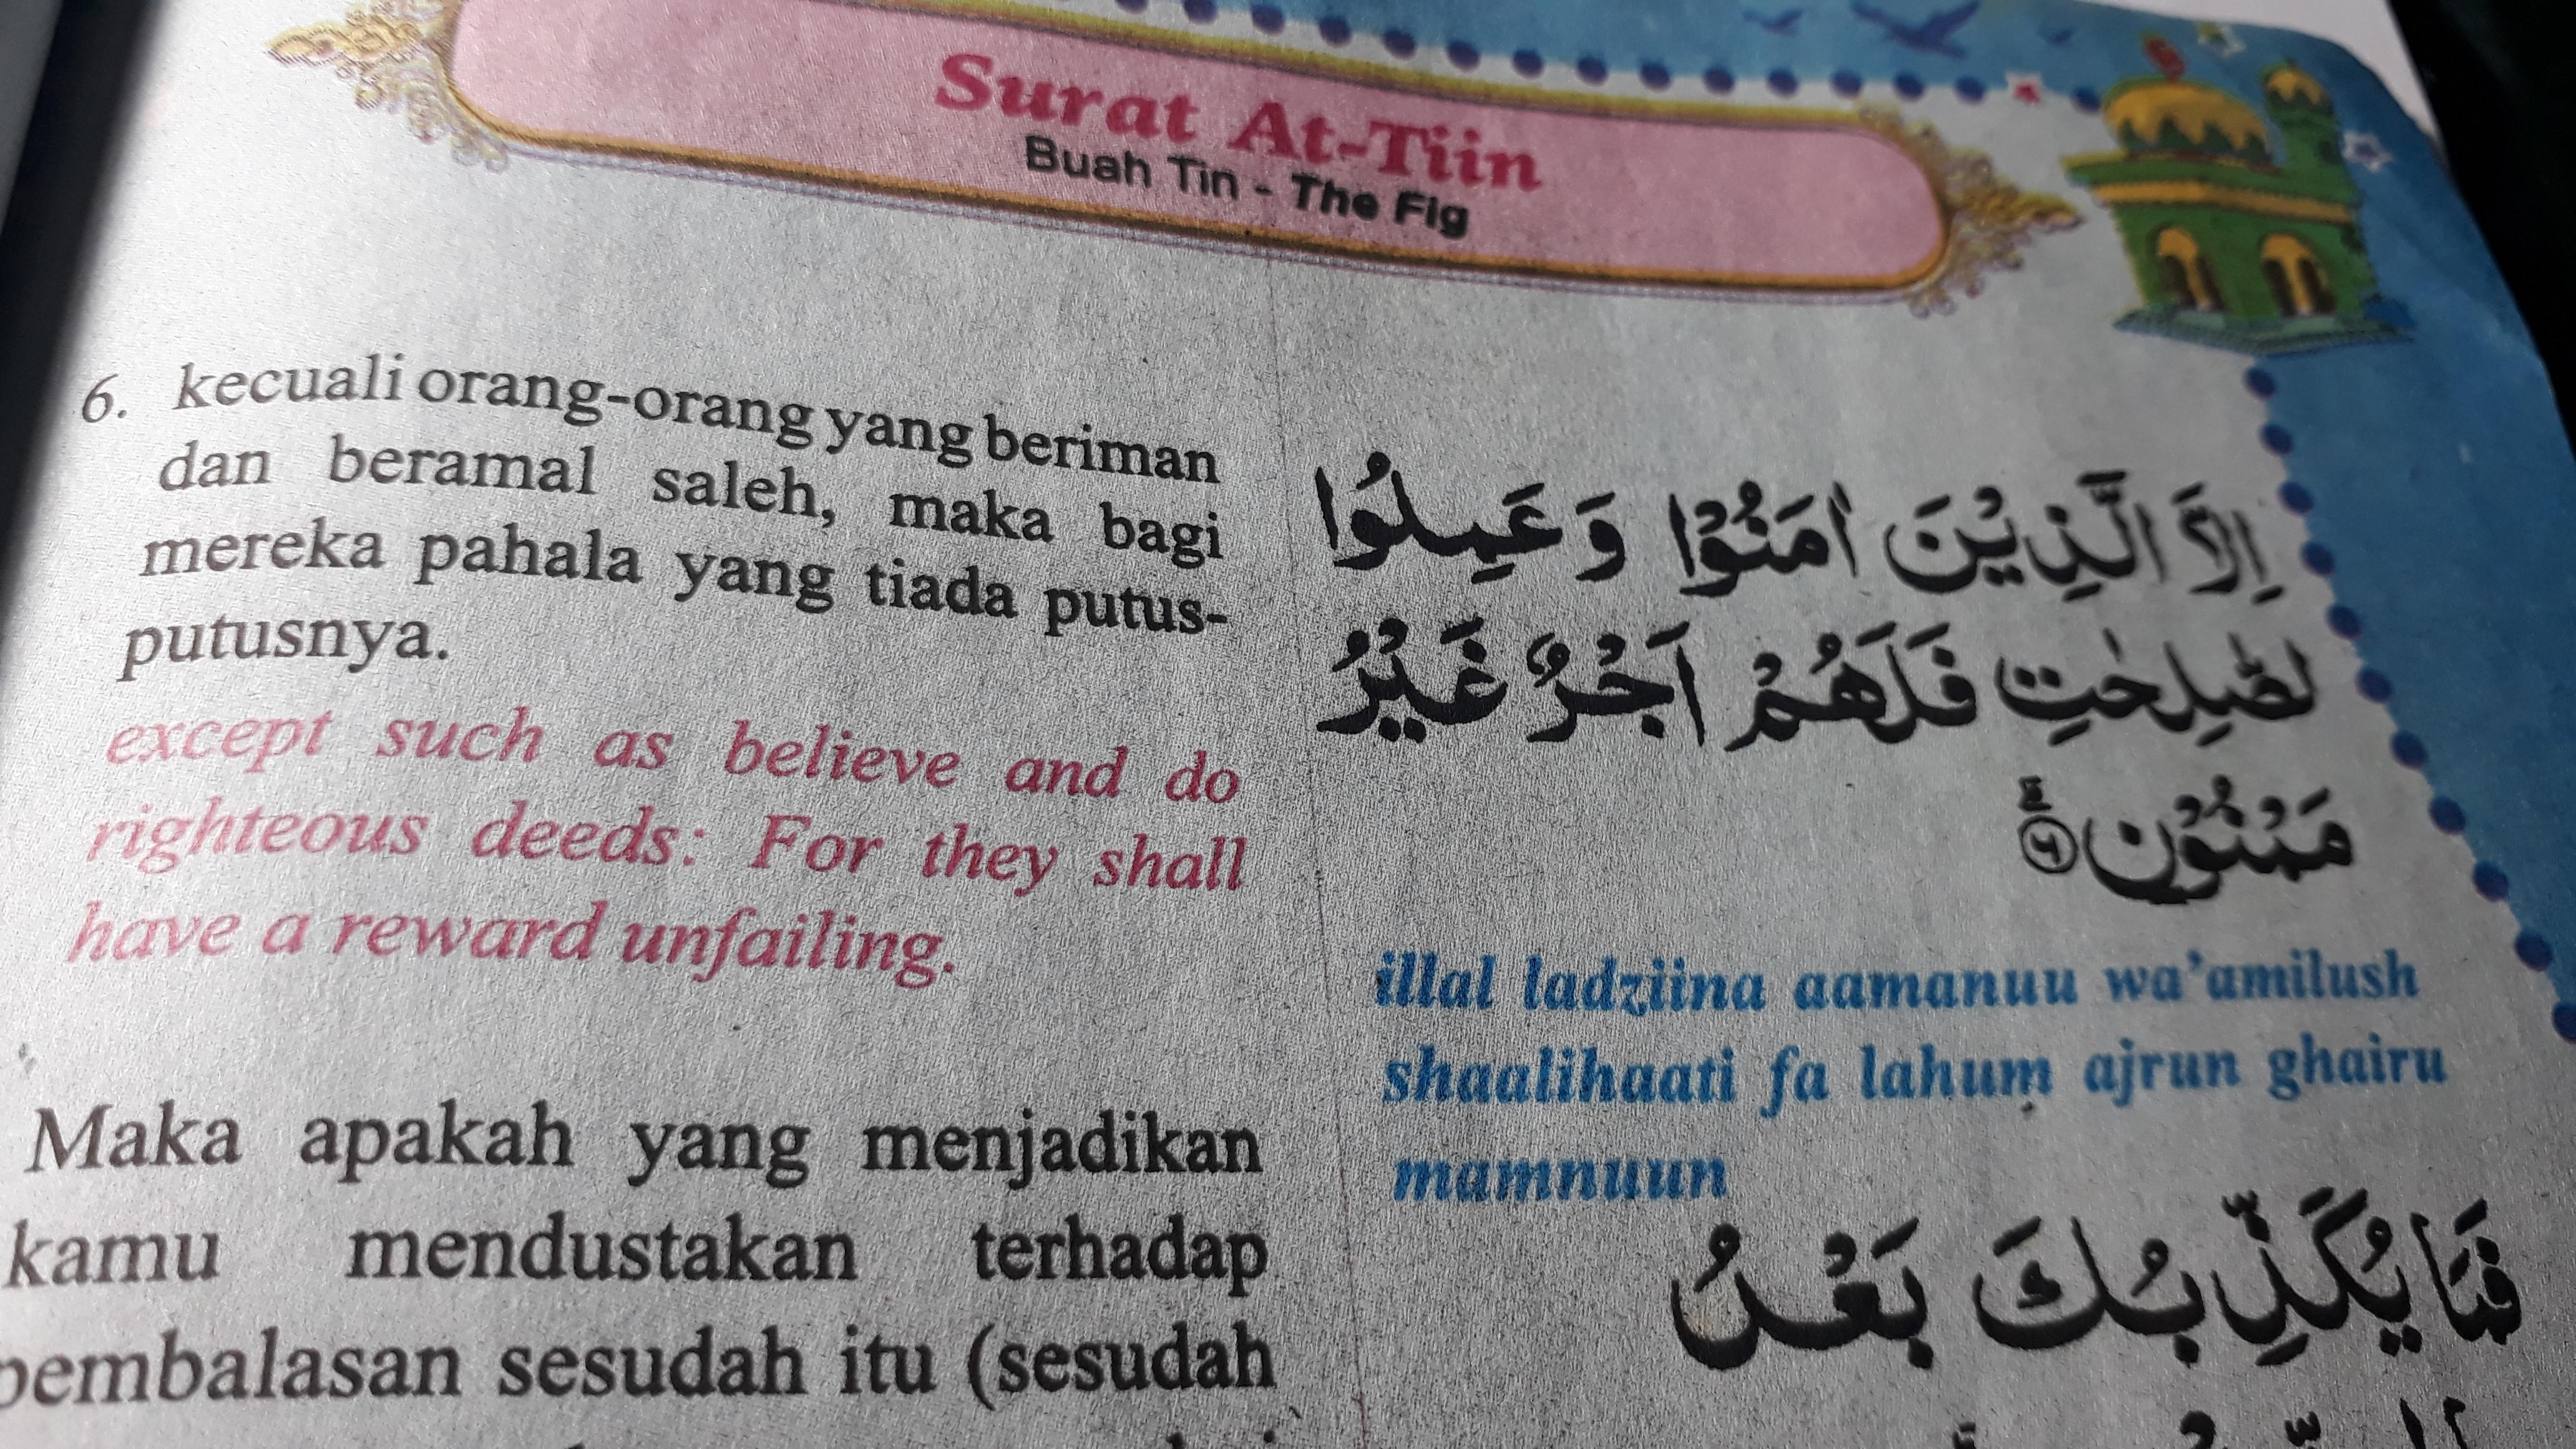 Surat At-Tiin
Buah Tin - The Fig
6. kecuali orang-orang yang beriman
dan beramal saleh, maka bagi
mereka pahala yang tiada putus-
putusnya.
except such as believe and do
righteous deeds: For they shall
have a reward unfailing.
اِلاَّ الَّذِيْنَ اٰمَنُوْا وَعَمِلُوا
لصّٰلِحٰتِ فَلَهُمْ اَجْرٌ غَيْرُ
مَمْنُوْنٍ ۗ ﴿٦﴾
illal ladziina aamanuu wa'amilush
shaalihaati fa lahum ajrun ghairu
mamnuun
Maka apakah yang menjadikan
kamu mendustakan terhadap
pembalasan sesudah itu (sesudah
فَمَا يُكَذِّبُكَ بَعْدُ